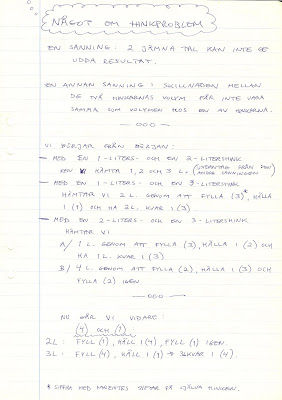 NÅGOT OM HINKPROBLEM
EN SANNING: 2 JÄMNA TAL KAN INTE GE
UDDA RESULTAT.
EN ANNAN SANNING: SKILLNADEN MELLAN
DE TVÅ HINKARNAS VOLYM FÅR INTE VARA
SAMMA SOM VOLYMEN HOS EN AV HINKARNA.
— 000 —
VI BÖRJAR FRÅN BÖRJAN:
— MED EN 1-LITERS- OCH EN 2-LITERSHINK
KAN VI HÄMTA 1, 2 OCH 3 L. (UNDANTAG FRÅN DEN
ANDRA SANNINGEN)
— MED EN 1-LITERS- OCH EN 3-LITERSHINK
HÄMTAR VI 2 L. GENOM ATT FYLLA (3)*, HÄLLA
I (1) OCH HA 2L. KVAR I (3).
— MED EN 2-LITERS- OCH EN 3-LITERSHINK
HÄMTAR VI
A/ 1 L. GENOM ATT FYLLA (3), HÄLLA I (2) OCH
HA 1L. KVAR I (3)
B/ 4 L. GENOM ATT FYLLA (2), HÄLLA I (3) OCH
FYLLA (2) IGEN
— 000 —
NU GÅR VI VIDARE:
(4) OCH (1)
2L: FYLL (1), HÄLL I (4), FYLL (1) IGEN.
3L: FYLL (4), HÄLL I (1) → 3L KVAR I (4).
* SIFFRA MED PARENTES SYFTAR PÅ SJÄLVA HINKEN.